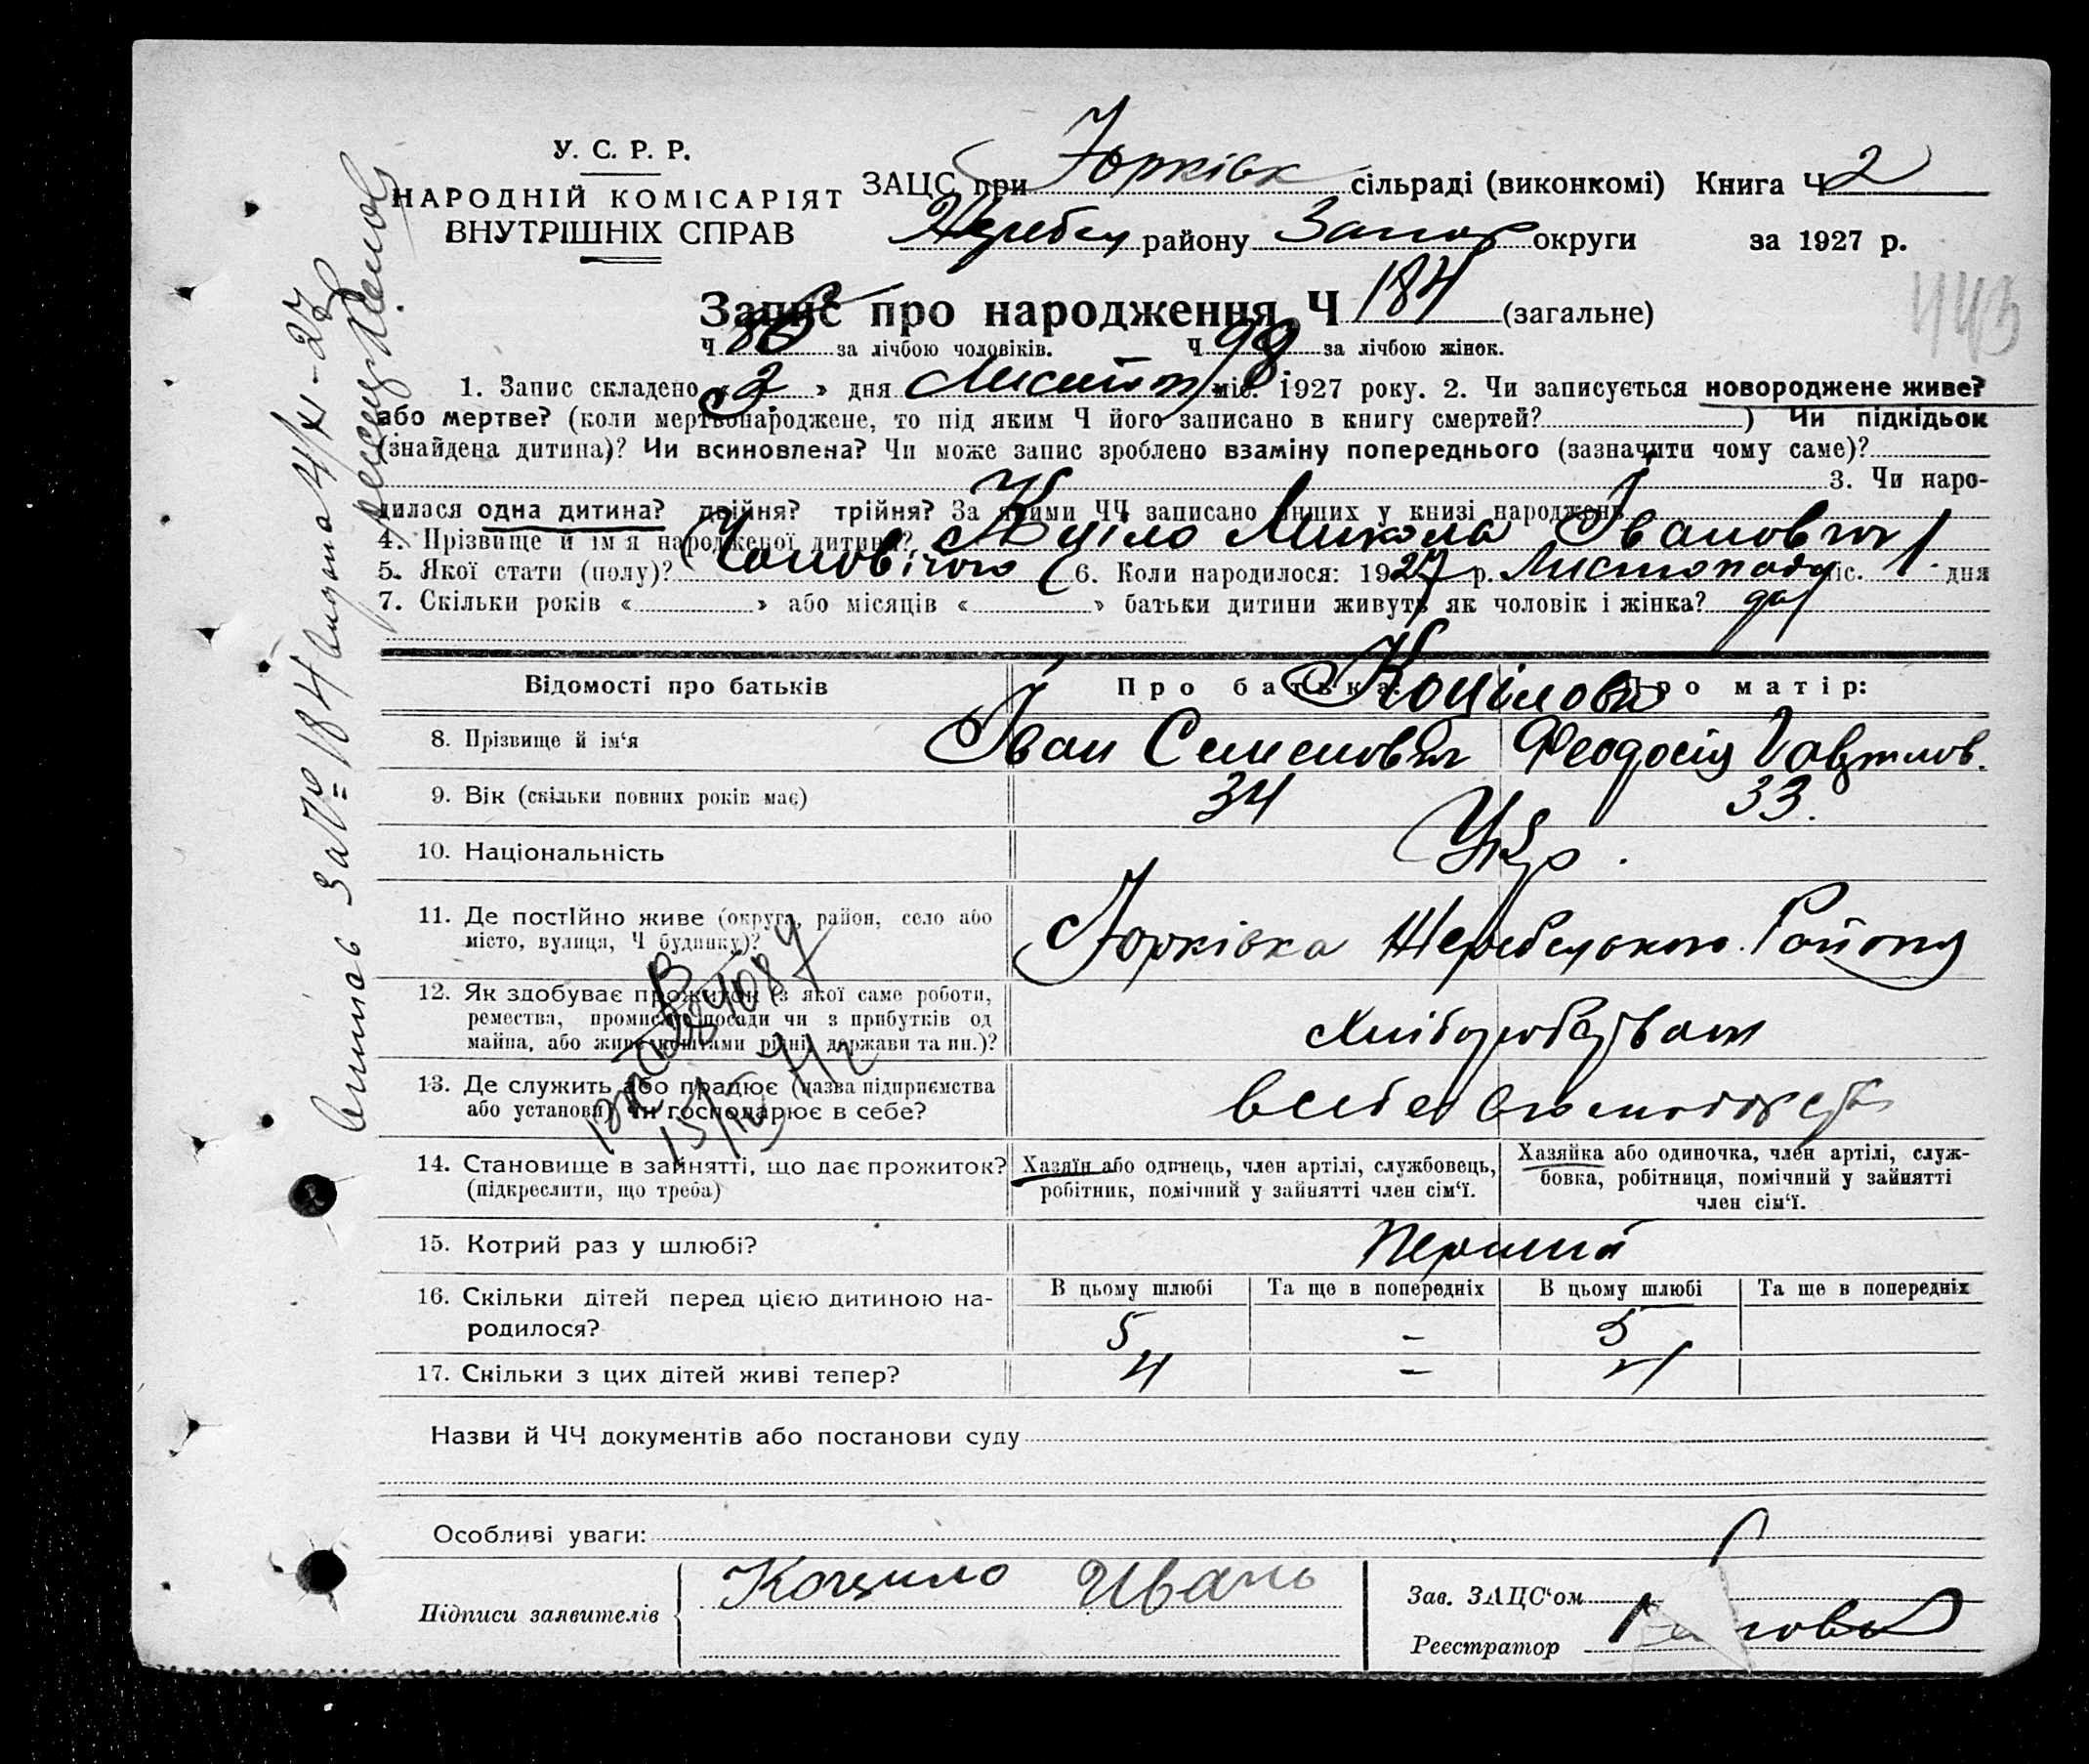 У. С. Р. Р.
НАРОДНІЙ КОМІСАРІЯТ
ВНУТРІШНІХ СПРАВ
ЗАЦС при Юрківк сільраді (виконкомі) Книга Ч 2
Жеребец району Запор округи за 1927 р.
443
Запис про народження Ч 184 (загальне)
Ч 86 за лічбою чоловіків. Ч 98 за лічбою жінок.
1. Запис складено « 2 » дня Листоп міс. 1927 року. 2. Чи записується новороджене живе?
або мертве? (коли мертвонароджене, то під яким Ч його записано в книгу смертей? ) Чи підкідьок
(знайдена дитина)? Чи всиновлена? Чи може запис зроблено взаміну попереднього (зазначити чому саме)?
3. Чи наро-
дилася одна дитина? двійня? трійня? За якими ЧЧ записано инших у книзі народжень
4. Прізвище й ім'я народженої дитини? Микола Іванович
5. Якої стати (полу)? Чоловічого 6. Коли народилося: 1927 р. Листопада міс. 1 дня
7. Скільки років « » або місяців « » батьки дитини живуть як чоловік і жінка? да
Відомості про батьків Про батька: Про матір:
Коцілови
8. Прізвище й ім'я Іван Семенович Феодосія Гаврилов.
9. Вік (скільки повних років має) 34 33.
10. Національність Укр.
11. Де постІйно живе (округа, район, село або Юрківка Жеребецького Району
місто, вулиця, Ч будинку)?
12. Як здобуває прожиток (з якої саме роботи, Хліборобством
ремества, промислу, посади чи з прибутків од
майна, або живе коштами рідні, держави та ин.)?
13. Де служить або працює (назва підприємства
або установи) чи господарює в себе?
14. Становище в зайнятті, що дає прожиток? Хазяїн або одинець, член артілі, службовець, Хазяйка або одиночка, член артілі, служ-
(підкреслити, що треба) робітник, помічний у зайнятті член сім'ї. бовка, робітниця, помічний у зайнятті
член сім'ї.
15. Котрий раз у шлюбі? Перший
16. Скільки дітей перед цією дитиною на- В цьому шлюбі Та ще в попередніх В цьому шлюбі Та ще в попередніх
родилося? 5 - 5
17. Скільки з цих дітей живі тепер? 4 - 4
Назви й ЧЧ документів або постанови суду
Особливі уваги:
Підписи заявителів Коцило Иванъ
Зав. ЗАЦС'ом
Реєстратор